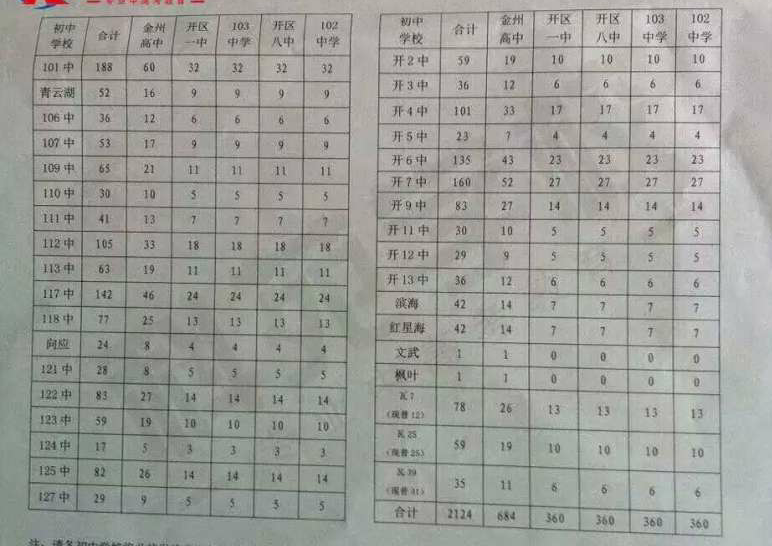 初中学校 合计 金州高中 开区一中 103中学 开区八中 102中学
101中 188 60 32 32 32 32
青云湖 52 16 9 9 9 9
106中 36 12 6 6 6 6
107中 53 17 9 9 9 9
109中 65 21 11 11 11 11
110中 30 10 5 5 5 5
111中 41 13 7 7 7 7
112中 105 33 18 18 18 18
113中 63 19 11 11 11 11
117中 142 46 24 24 24 24
118中 77 25 13 13 13 13
向应 24 8 4 4 4 4
121中 28 8 5 5 5 5
122中 83 27 14 14 14 14
123中 59 19 10 10 10 10
124中 17 5 3 3 3 3
125中 82 26 14 14 14 14
127中 29 9 5 5 5 5
初中学校 合计 金州高中 开区一中 开区八中 103中学 102中学
开2中 59 19 10 10 10 10
开3中 36 12 6 6 6 6
开4中 101 33 17 17 17 17
开5中 23 7 4 4 4 4
开6中 135 43 23 23 23 23
开7中 160 52 27 27 27 27
开9中 83 27 14 14 14 14
开11中 30 10 5 5 5 5
开12中 29 9 5 5 5 5
开13中 36 12 6 6 6 6
滨海 42 14 7 7 7 7
红星海 42 14 7 7 7 7
文武 1 1 0 0 0 0
枫叶 1 1 0 0 0 0
瓦7（现普12） 78 26 13 13 13 13
瓦25（现普25） 59 19 10 10 10 10
瓦39（现普31） 35 11 6 6 6 6
合计 2124 684 360 360 360 360